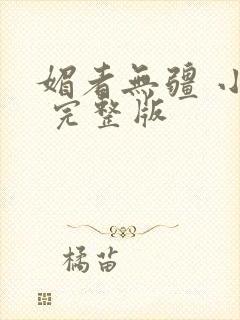 媚者無疆 小
完整版
橘苗